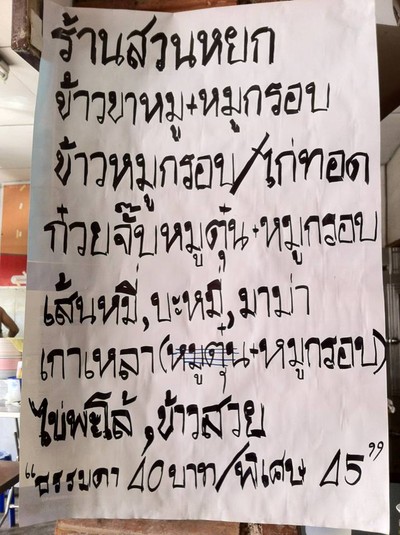 ร้านสวนหยก
ข้าวขาหมู+หมูกรอบ
ข้าวหมูกรอบ/ไก่ทอด
ก๋วยจั๊บหมูตุ๋น+หมูกรอบ
เส้นหมี่,บะหมี่,มาม่า
เกาเหลา(หมูตุ๋น+หมูกรอบ)
ไข่พะโล้,ข้าวสวย
“ธรรมดา 40 บาท/พิเศษ 45”